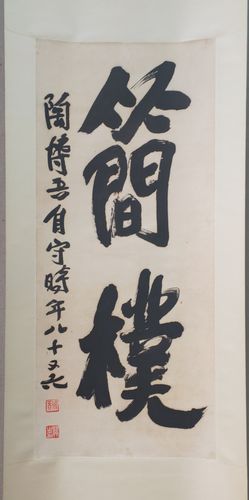 簡樸
陶博吾自守時年八十又七